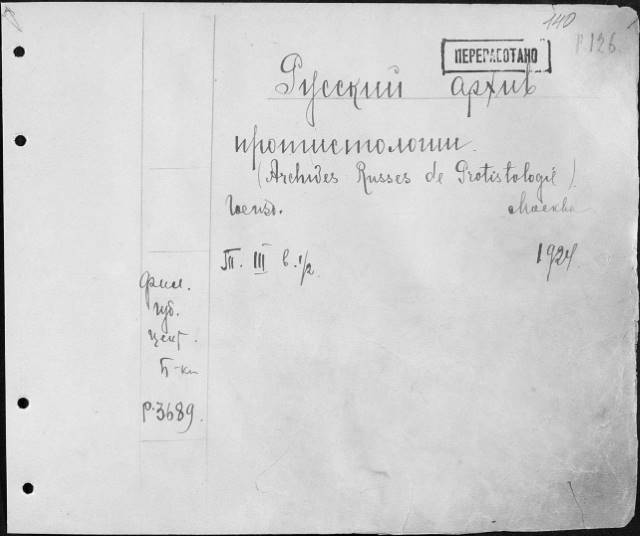 140
Р.126
ПЕРЕРАБОТАНО
Русский архив
протистологии.
(Archives Russes de Protistologie)
Госизд. Москва
Т. III в. 1/2. 1924.
Фил.
Губ.
Цент.
Б-ки
Р.3689.